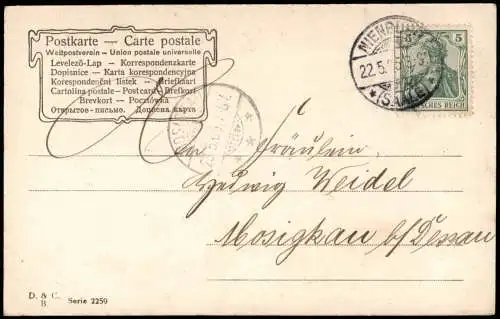 Postkarte — Carte postale
Weltpostverein — Union postale universelle
Levelező-Lap — Korrespondenzkarte
Dopisnice — Karta korespondencyjna
Korespondenční lístek — Briefkort
Cartolina postale — Postcard — Brefkort
Brevkort — Рословка
Открытое письмо. Дописна карта
NIENBURG
22.5.
*(SAALE)*
5
DEUTSCHES REICH
Fräulein
Hedwig Weidel
Mosigkau b/Dessau
D. & C.
B.
Serie 2259